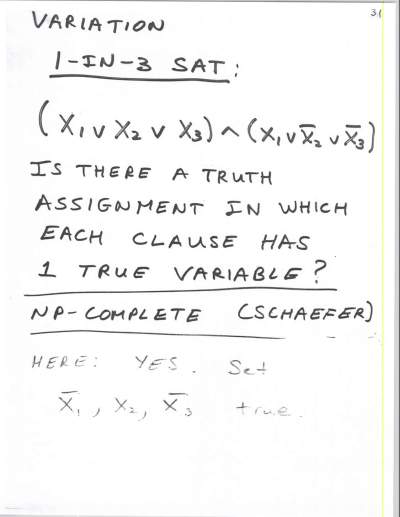 31
VARIATION
1-IN-3 SAT:
(X₁ ∨ X₂ ∨ X₃) ∧ (X₁ ∨ X̄₂ ∨ X̄₃)
IS THERE A TRUTH
ASSIGNMENT IN WHICH
EACH CLAUSE HAS
1 TRUE VARIABLE?
NP-COMPLETE (SCHAEFER)
HERE: YES. Set
X̄₁, X₂, X̄₃ true.